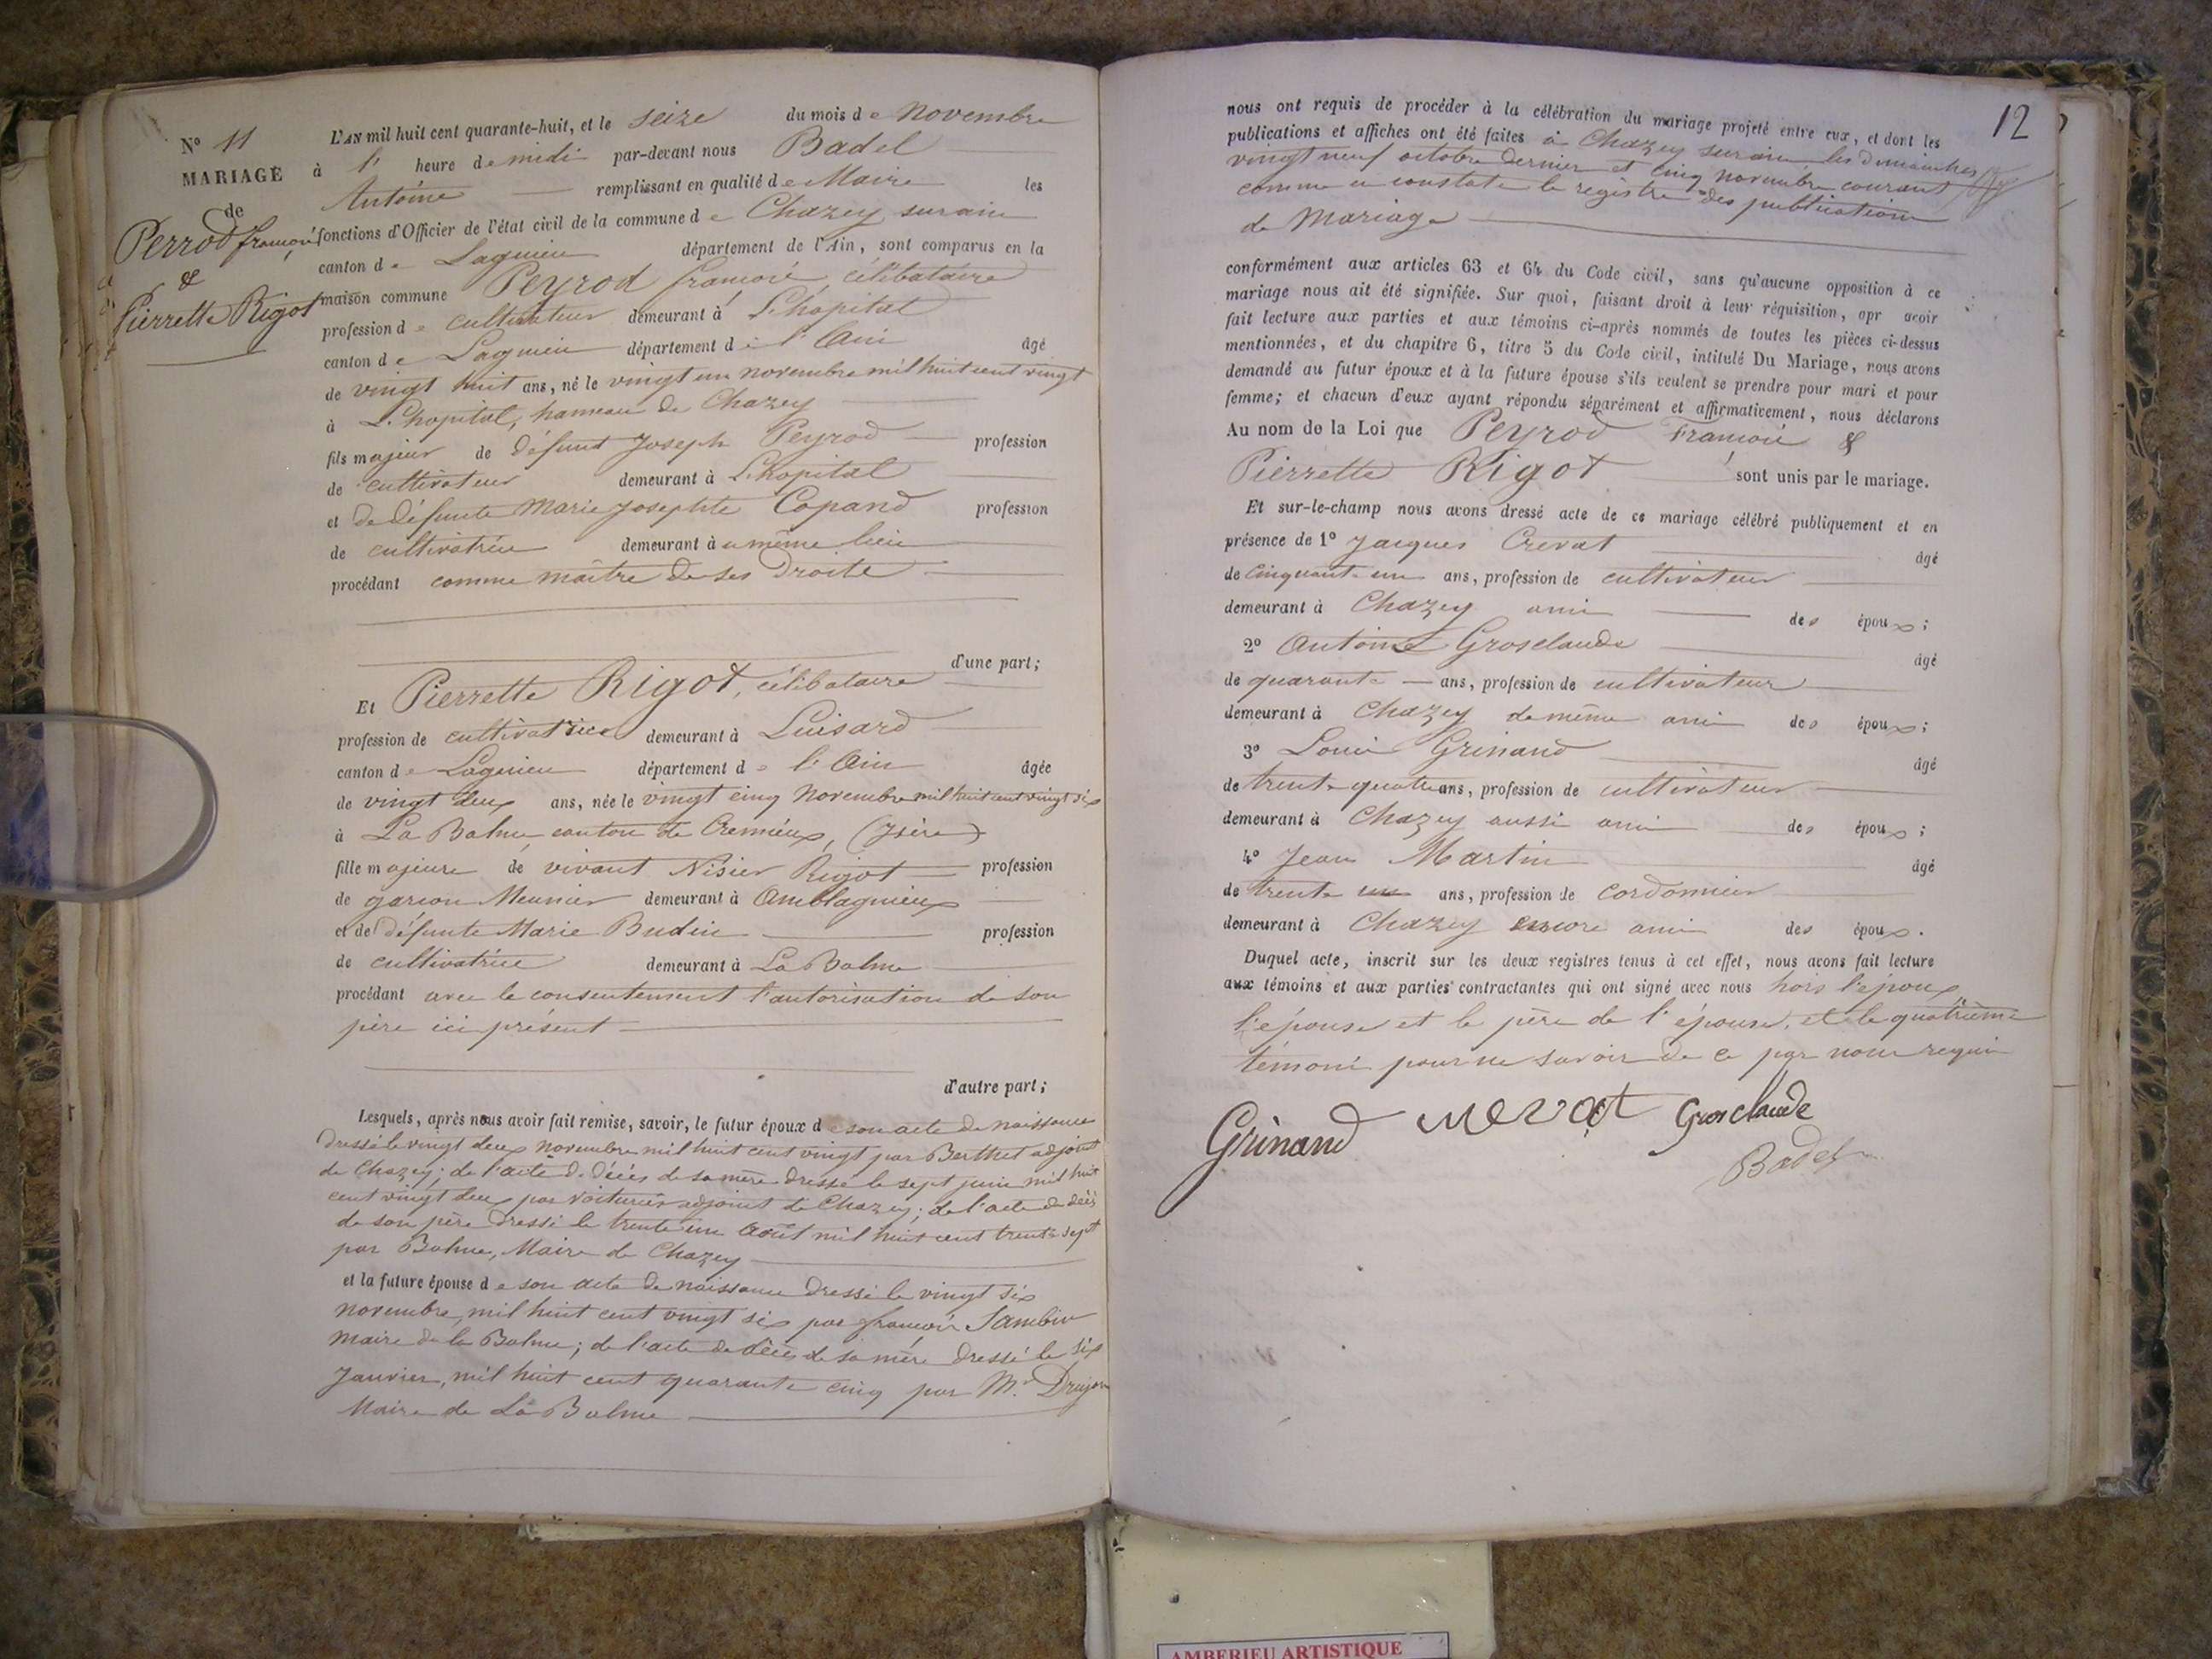 N° 11
MARIAGE
de
Perrod françois
&
Pierrette Rigot
L'AN mil huit cent quarante-huit, et le seize du mois de Novembre
à 1' heure de midi par-devant nous Badel
Antoine remplissant en qualité de Maire les
fonctions d'Officier de l'état civil de la commune de Chazey surain
canton de Lagnieu département de l'Ain, sont comparus en la
maison commune Peyrod françois, célibataire
profession de cultivateur demeurant à L'hopital
canton de Lagnieu département de l'Ain âgé
de vingt huit ans, né le vingt un novembre mil huit cent vingt
à L'hopital, hameau de Chazey
fils majeur de défunt Joseph Peyrod profession
de cultivateur demeurant à L'hopital
et de défunte Marie Josephte Copand profession
de cultivatrice demeurant à u même lieu
procédant comme maître de ses droits
d'une part;
Et Pierrette Rigot, célibataire
profession de cultivatrice demeurant à Luisard
canton de Lagnieu département de l'Ain âgée
de vingt deux ans, née le vingt cinq Novembre mil huit cent vingt six
à La Balme canton de Cremieux, (Isère)
fille majeure de vivant Nisier Rigot profession
de garçon Meunier demeurant à Amblagnieux
et de défunte Marie Budin profession
de cultivatrice demeurant à La Balme
procédant avec le consentement l'autorisation de son
père ici présent
d'autre part;
Lesquels, après nous avoir fait remise, savoir, le futur époux de son acte de naissance
dressé le vingt deux novembre mil huit cent vingt par Berthet adjoint
de Chazey; de l'acte de décès de sa mère dressé le sept juin mil huit
cent vingt deux par Voiturier adjoint de Chazey; de l'acte de décès
de son père dressé le trente un Août mil huit cent trente sept
par Bohue, Maire de Chazey
et la future épouse de son acte de naissance dressé le vingt six
novembre, mil huit cent vingt six par françois Sambin
maire de la Balme; de l'acte de décès de sa mère dressé le six
Janvier, mil huit cent quarante cinq par Mr Drujon
Maire de La Balme
12
nous ont requis de procéder à la célébration du mariage projeté entre eux, et dont les
publications et affiches ont été faites à Chazey surain les dimanches
vingt neuf octobre dernier et cinq novembre courant
comme en constate le registre des publications
de Mariage
conformément aux articles 63 et 64 du Code civil, sans qu'aucune opposition à ce
mariage nous ait été signifiée. Sur quoi, faisant droit à leur réquisition, apr avoir
fait lecture aux parties et aux témoins ci-après nommés de toutes les pièces ci-dessus
mentionnées, et du chapitre 6, titre 5 du Code civil, intitulé Du Mariage, nous avons
demandé au futur époux et à la future épouse s'ils veulent se prendre pour mari et pour
femme; et chacun d'eux ayant répondu séparément et affirmativement, nous déclarons
Au nom de la Loi que Peyrod François &
Pierrette Rigot sont unis par le mariage.
Et sur-le-champ nous avons dressé acte de ce mariage célébré publiquement et en
présence de 1° Jacques Crevat âgé
de cinquante un ans, profession de cultivateur
demeurant à Chazey ami des époux;
2° Antoine Grosclaude âgé
de quarante ans, profession de cultivateur
demeurant à Chazey de même ami des époux;
3° Louis Grinand âgé
de trente quatre ans, profession de cultivateur
demeurant à Chazey aussi ami des époux;
4° Jean Martin âgé
de trente un ans, profession de cordonnier
demeurant à Chazey encore ami des époux.
Duquel acte, inscrit sur les deux registres tenus à cet effet, nous avons fait lecture
aux témoins et aux parties contractantes qui ont signé avec nous hors l'époux
l'épouse et le père de l'épouse, et le quatrième
témoin pour ne savoir de ce par nous requis
Grinand crevat Grosclaude
Badel
AMBERIEU ARTISTIQUE